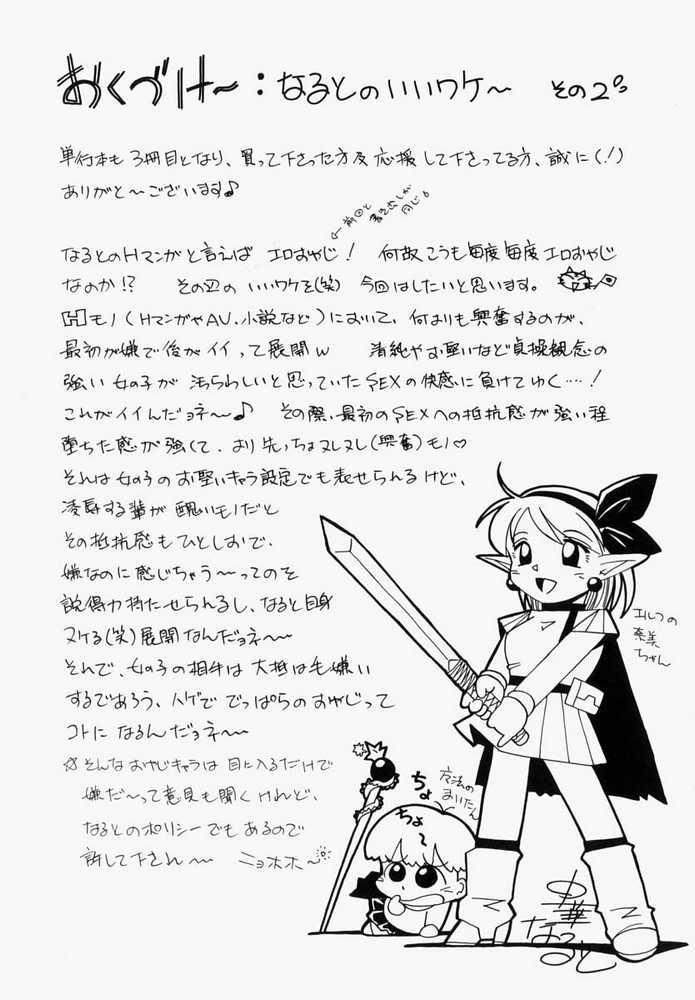 おくづけ〜：なるとのいいワケ〜 その2。
単行本も3冊目となり、買って下さった方及応援して下さってる方、誠に(!)
ありがと〜ございます♪
←前回と書き出しが同じ。
なるとのHマンガと言えば エロおやじ! 何故こうも毎度毎度エロおやじ
なのか!? その辺の いいワケを(笑) 今回はしたいと思います。
Hモノ(HマンガやAV、小説など)において、何よりも興奮するのが、
最初が嫌で後がイイって展開w 清純やお堅いなど貞操観念の
強い女の子が 汚らわしいと思っていたSEXの快感に負けてゆく…!
これがイイんだョネ〜♪ その際、最初のSEXへの抵抗感が強い程
堕ちた感が強くて、より先っちょヌレヌレ(興奮)モノ♡
それは女の子のお堅いキャラ設定でも表せられるけど、
凌辱する輩が醜いモノだと
その抵抗感もひとしおで、
嫌なのに感じちゃう〜ってのを
説得力持たせられるし、なると自身
ヌケる(笑)展開なんだョネ〜
それで、女の子の相手は大抵は毛嫌い
するであろう、ハゲで でっぱらのおやじって
コトになるんだョネ〜
☆そんなおやじキャラは目に入るだけで
嫌だ〜って意見も聞くけれど、
なるとのポリシーでもあるので
許して下され〜 ニョホホ〜
エルフの
奈美
ちゃん
魔法の
まいたん
ちょ
ちょ〜
中華
なると